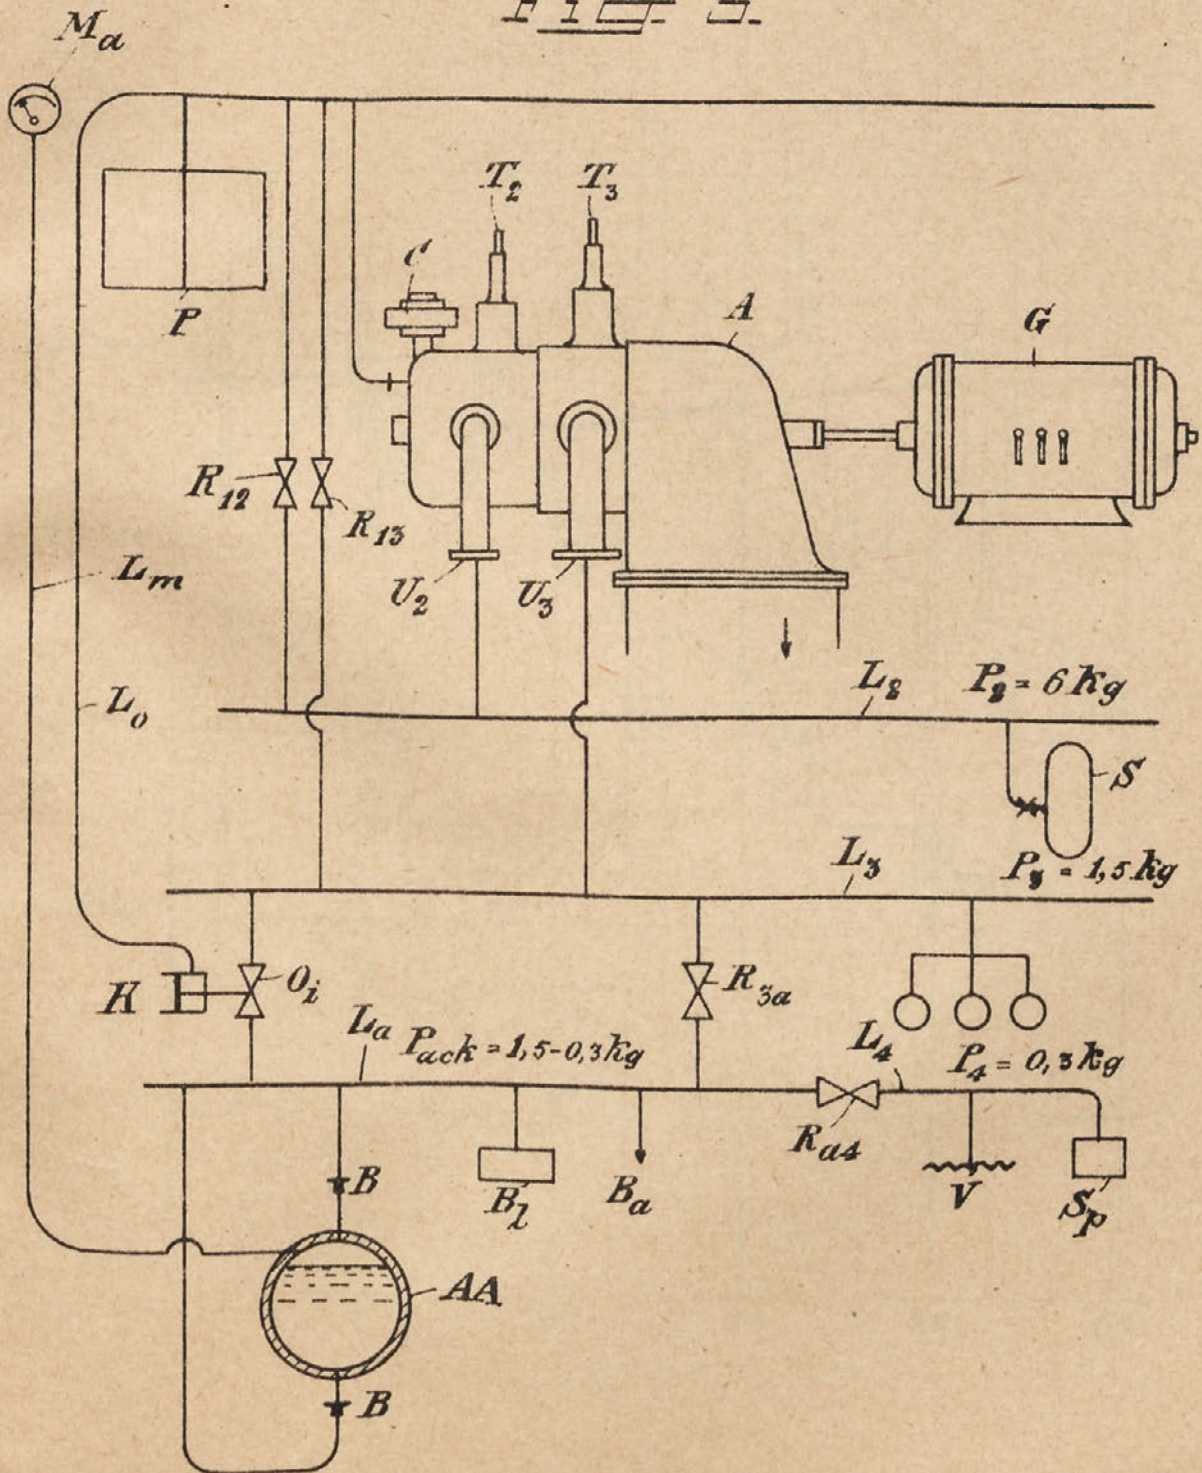 M_a
T_2
T_3
C
A
G
P
R_12
R_13
L_m
U_2
U_3
L_2
P_2 = 6 kg
L_o
S
L_3
P_3 = 1,5 kg
H
O_i
R_3a
L_a
P_ack = 1,5-0,3 kg
L_4
P_4 = 0,3 kg
R_a4
B
B_l
B_a
V
S_p
AA
B